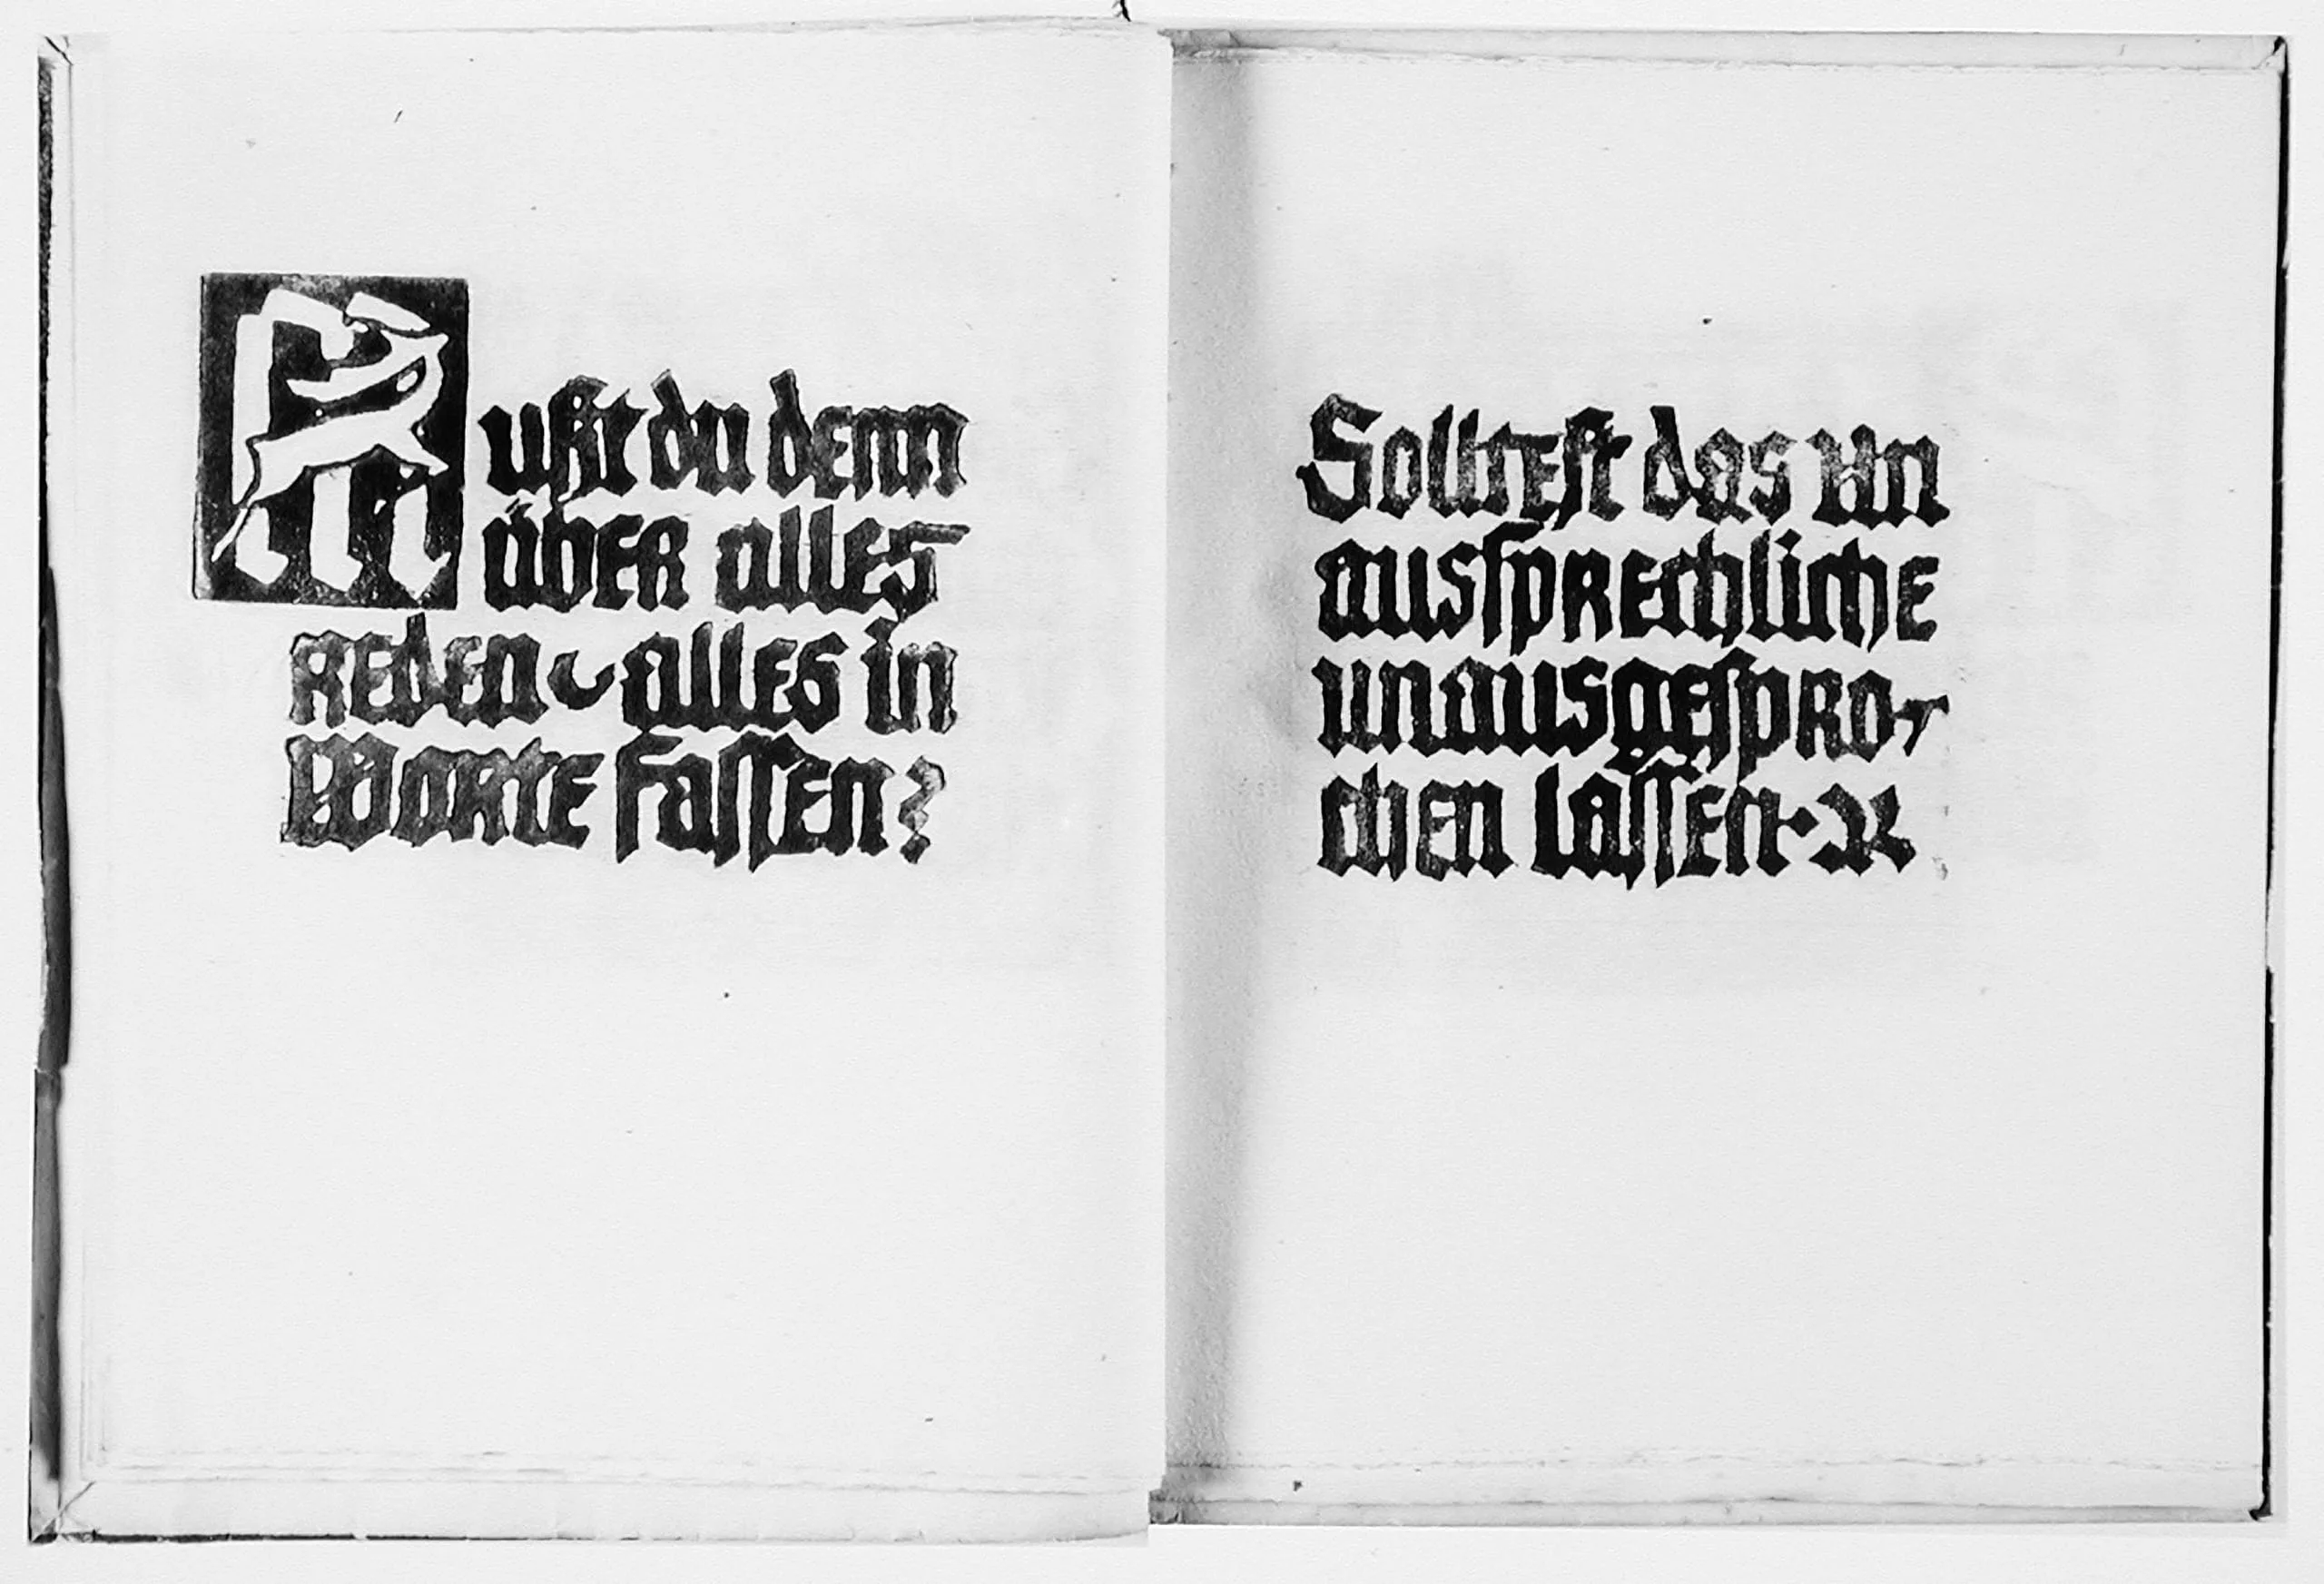 Mußt du denn
über alles
reden alles in
Worte fassen?
Solltest das un
aussprechliche
unausgespro-
chen lassen.